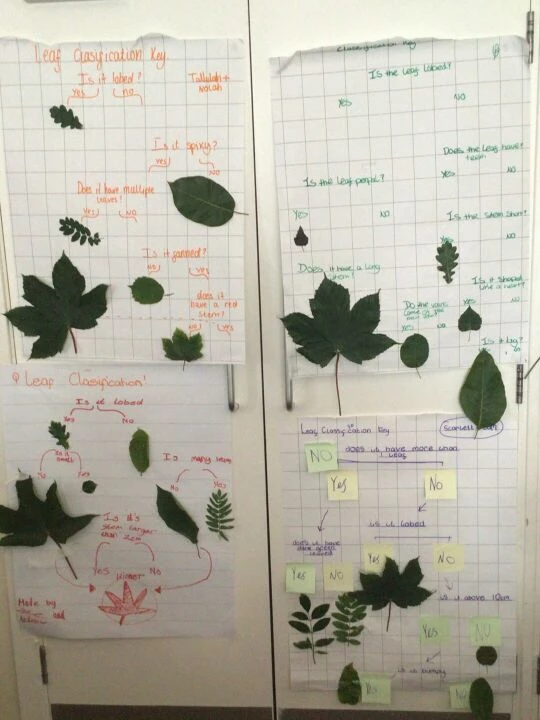 Leaf Clasification Key.
Is it lobed?
Yes no
Tallulah +
Nolah
Is it spiky?
yes NO
Does it have multiple
leaves?
Yes NO
Is it
NO yes
does it
have a red
stem?
NO Yes
Classification Key
Is the Leaf Lobed?
Yes NO
Does the Leaf have
Yes NO
Is the Leaf purple?
Yes NO
Is the Stem Short?
Yes NO
Does it have a long
Stem?
Is it Shaped
Like a heart?
Yes NO
Do the veins
come
Yes NO
Is it big?
Leaf Clasification
Is it lobed
Yes NO
is it
small
No Yes
Is many
No Yes
Is it's
stem longer
than 2cm
Yes No
Winner
Made by
and
Leaf Classification Key
Scarlett
does it have more than
1 leaf
NO
Yes No
is it lobed
does it have
dark green
leaves
Yes NO
Yes NO
is it above 10cm
Yes NO
is it bumpy
Yes
NO